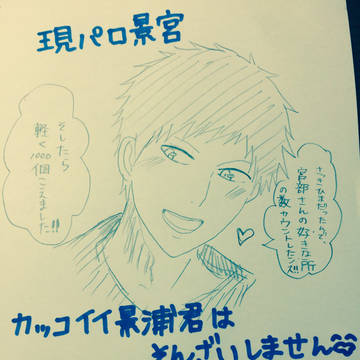 現パロ景宮
さっきひまだったんで、
宮部さんの好きな所
の数カウントしたンス!!
そしたら
軽く1000個こえました!!
カッコイイ景浦君は
そんざいしません